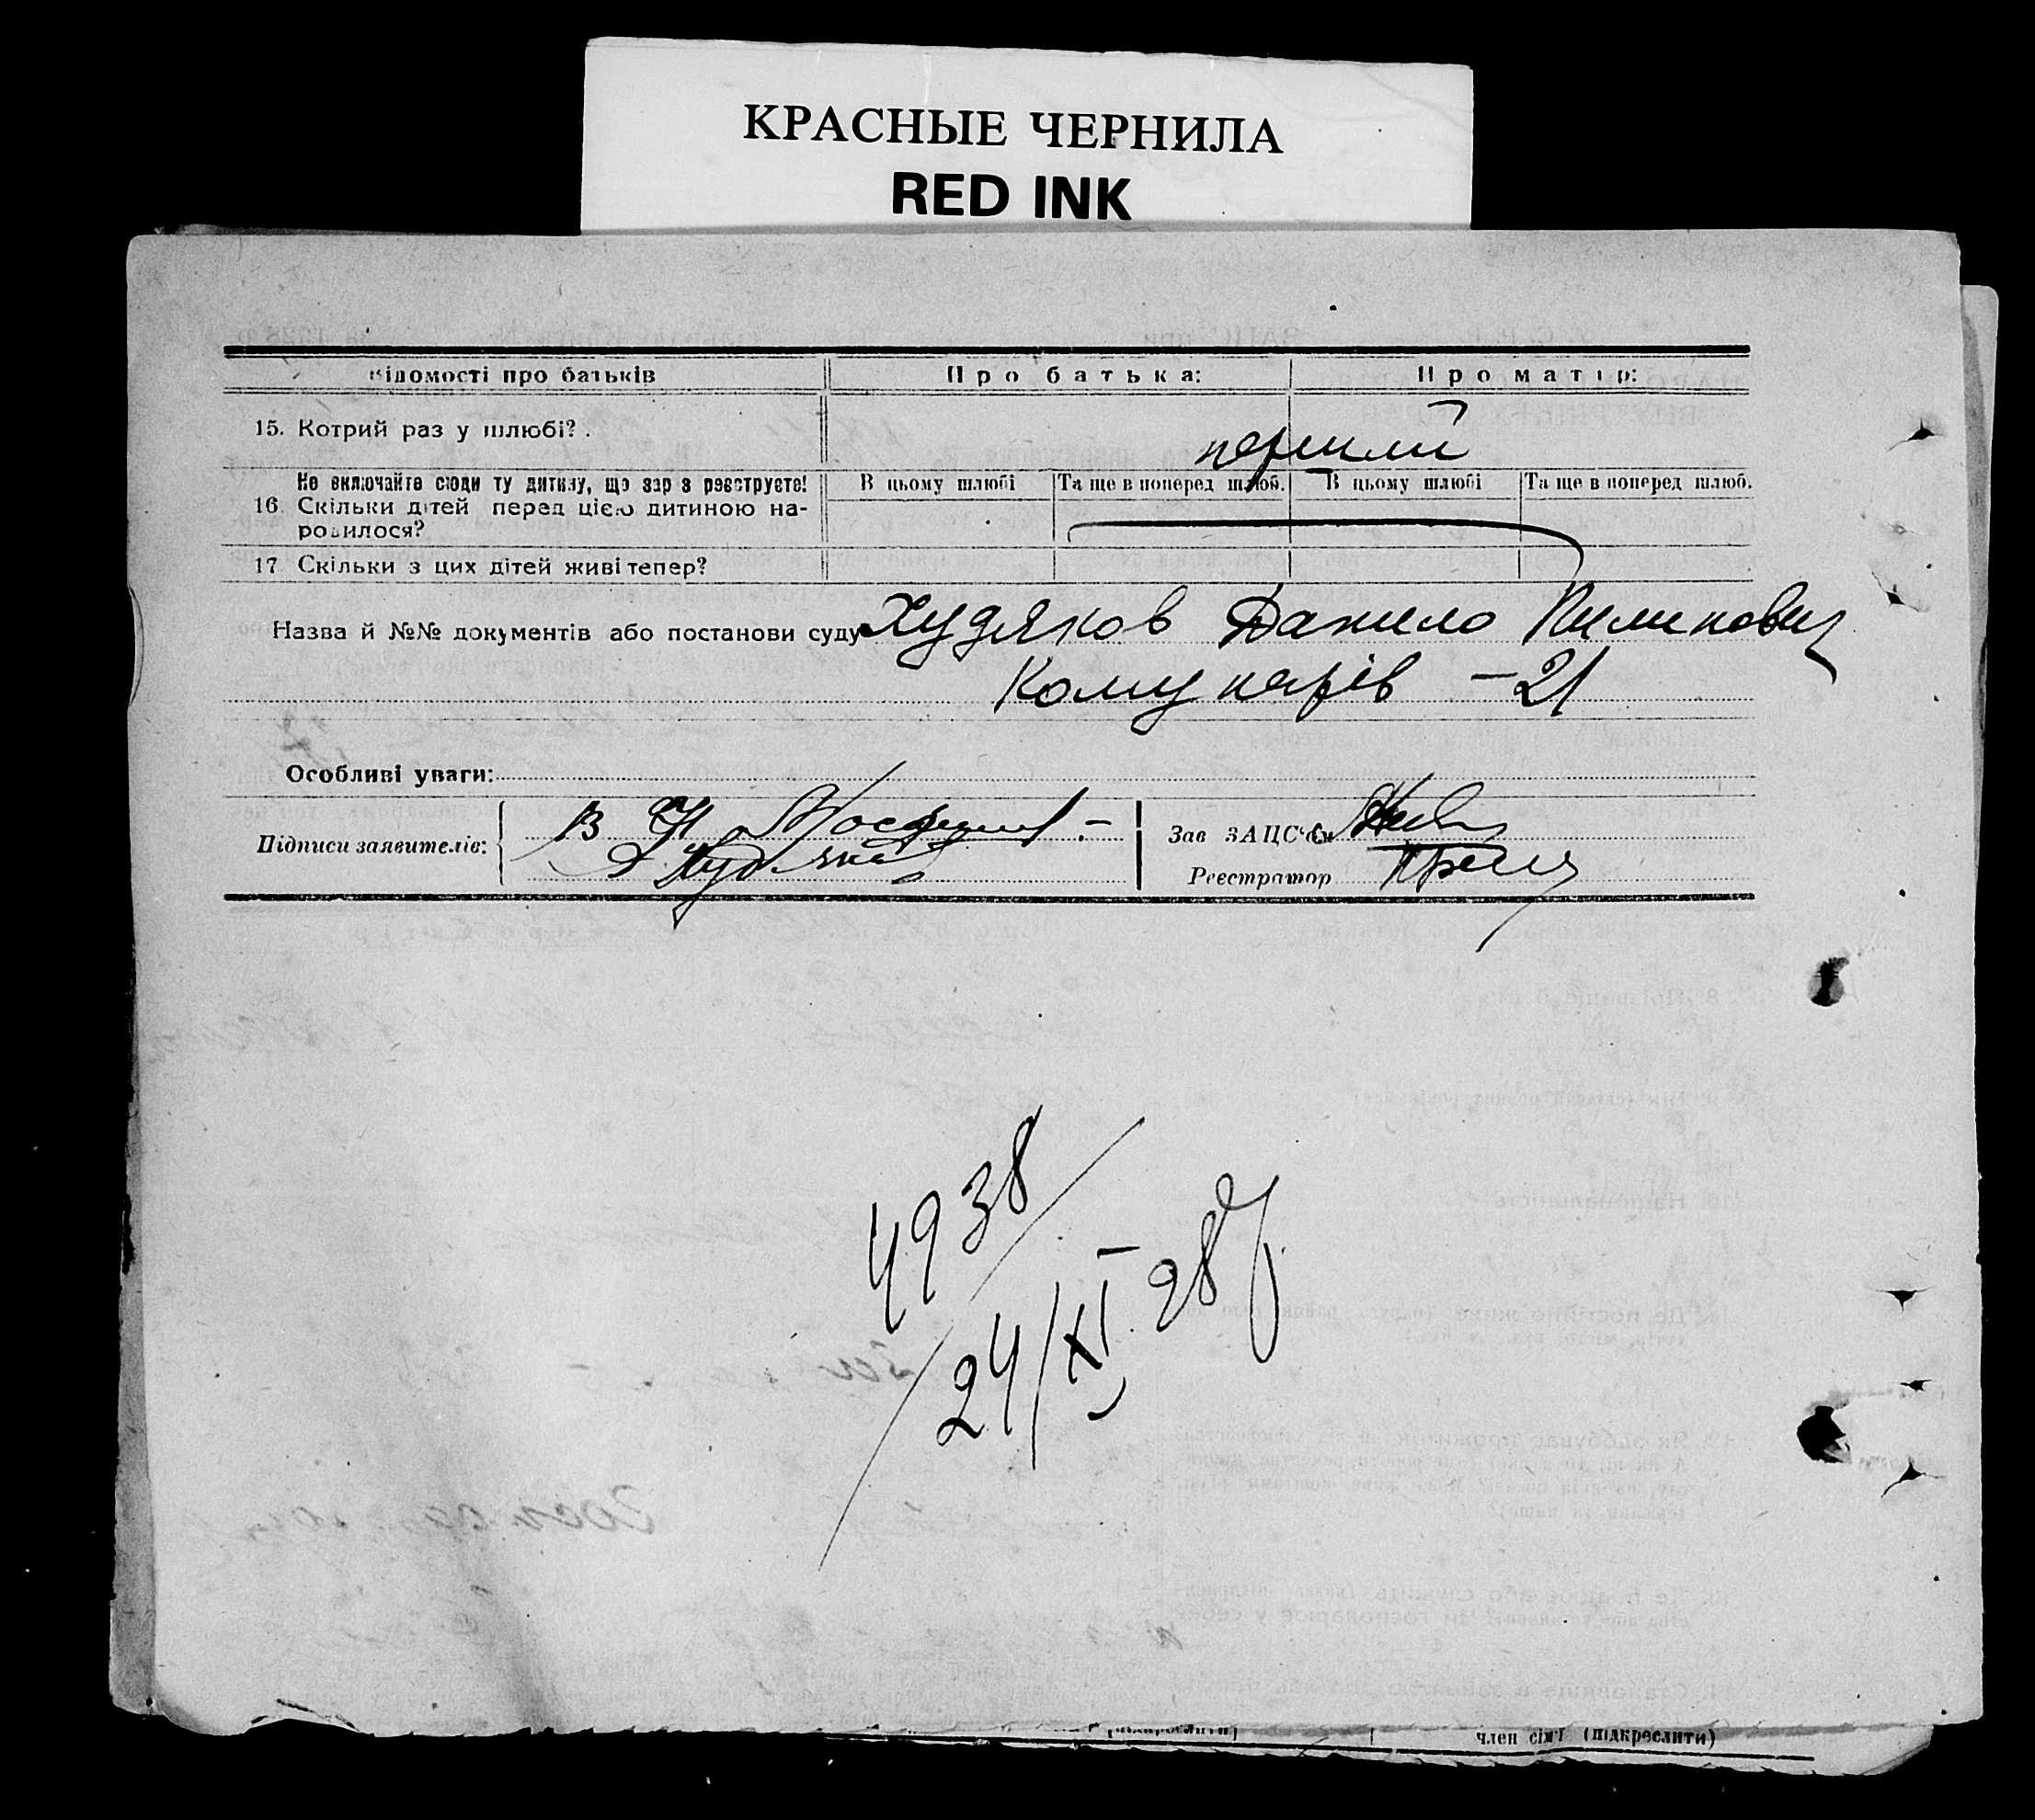 КРАСНЫЕ ЧЕРНИЛА
RED INK
Відомості про батьків
Про батька:
Про матір:
15. Котрий раз у шлюбі?
перший
Не включайте сюди ту дитину, що зараз реєструєте!
16. Скільки дітей перед цією дитиною на-
родилося?
В цьому шлюбі
Та ще в поперед шлюб.
В цьому шлюбі
Та ще в поперед шлюб.
17. Скільки з цих дітей живі тепер?
Назва й №№ документів або постанови суду Худяков Данило Пилипович
Комунарів – 21
Особливі уваги:
Підписи заявителів:
Зав ЗАЦС'ом
Реєстратор
4938
24/XI 28 р
(підкреслити)
член сім'ї (підкреслити)